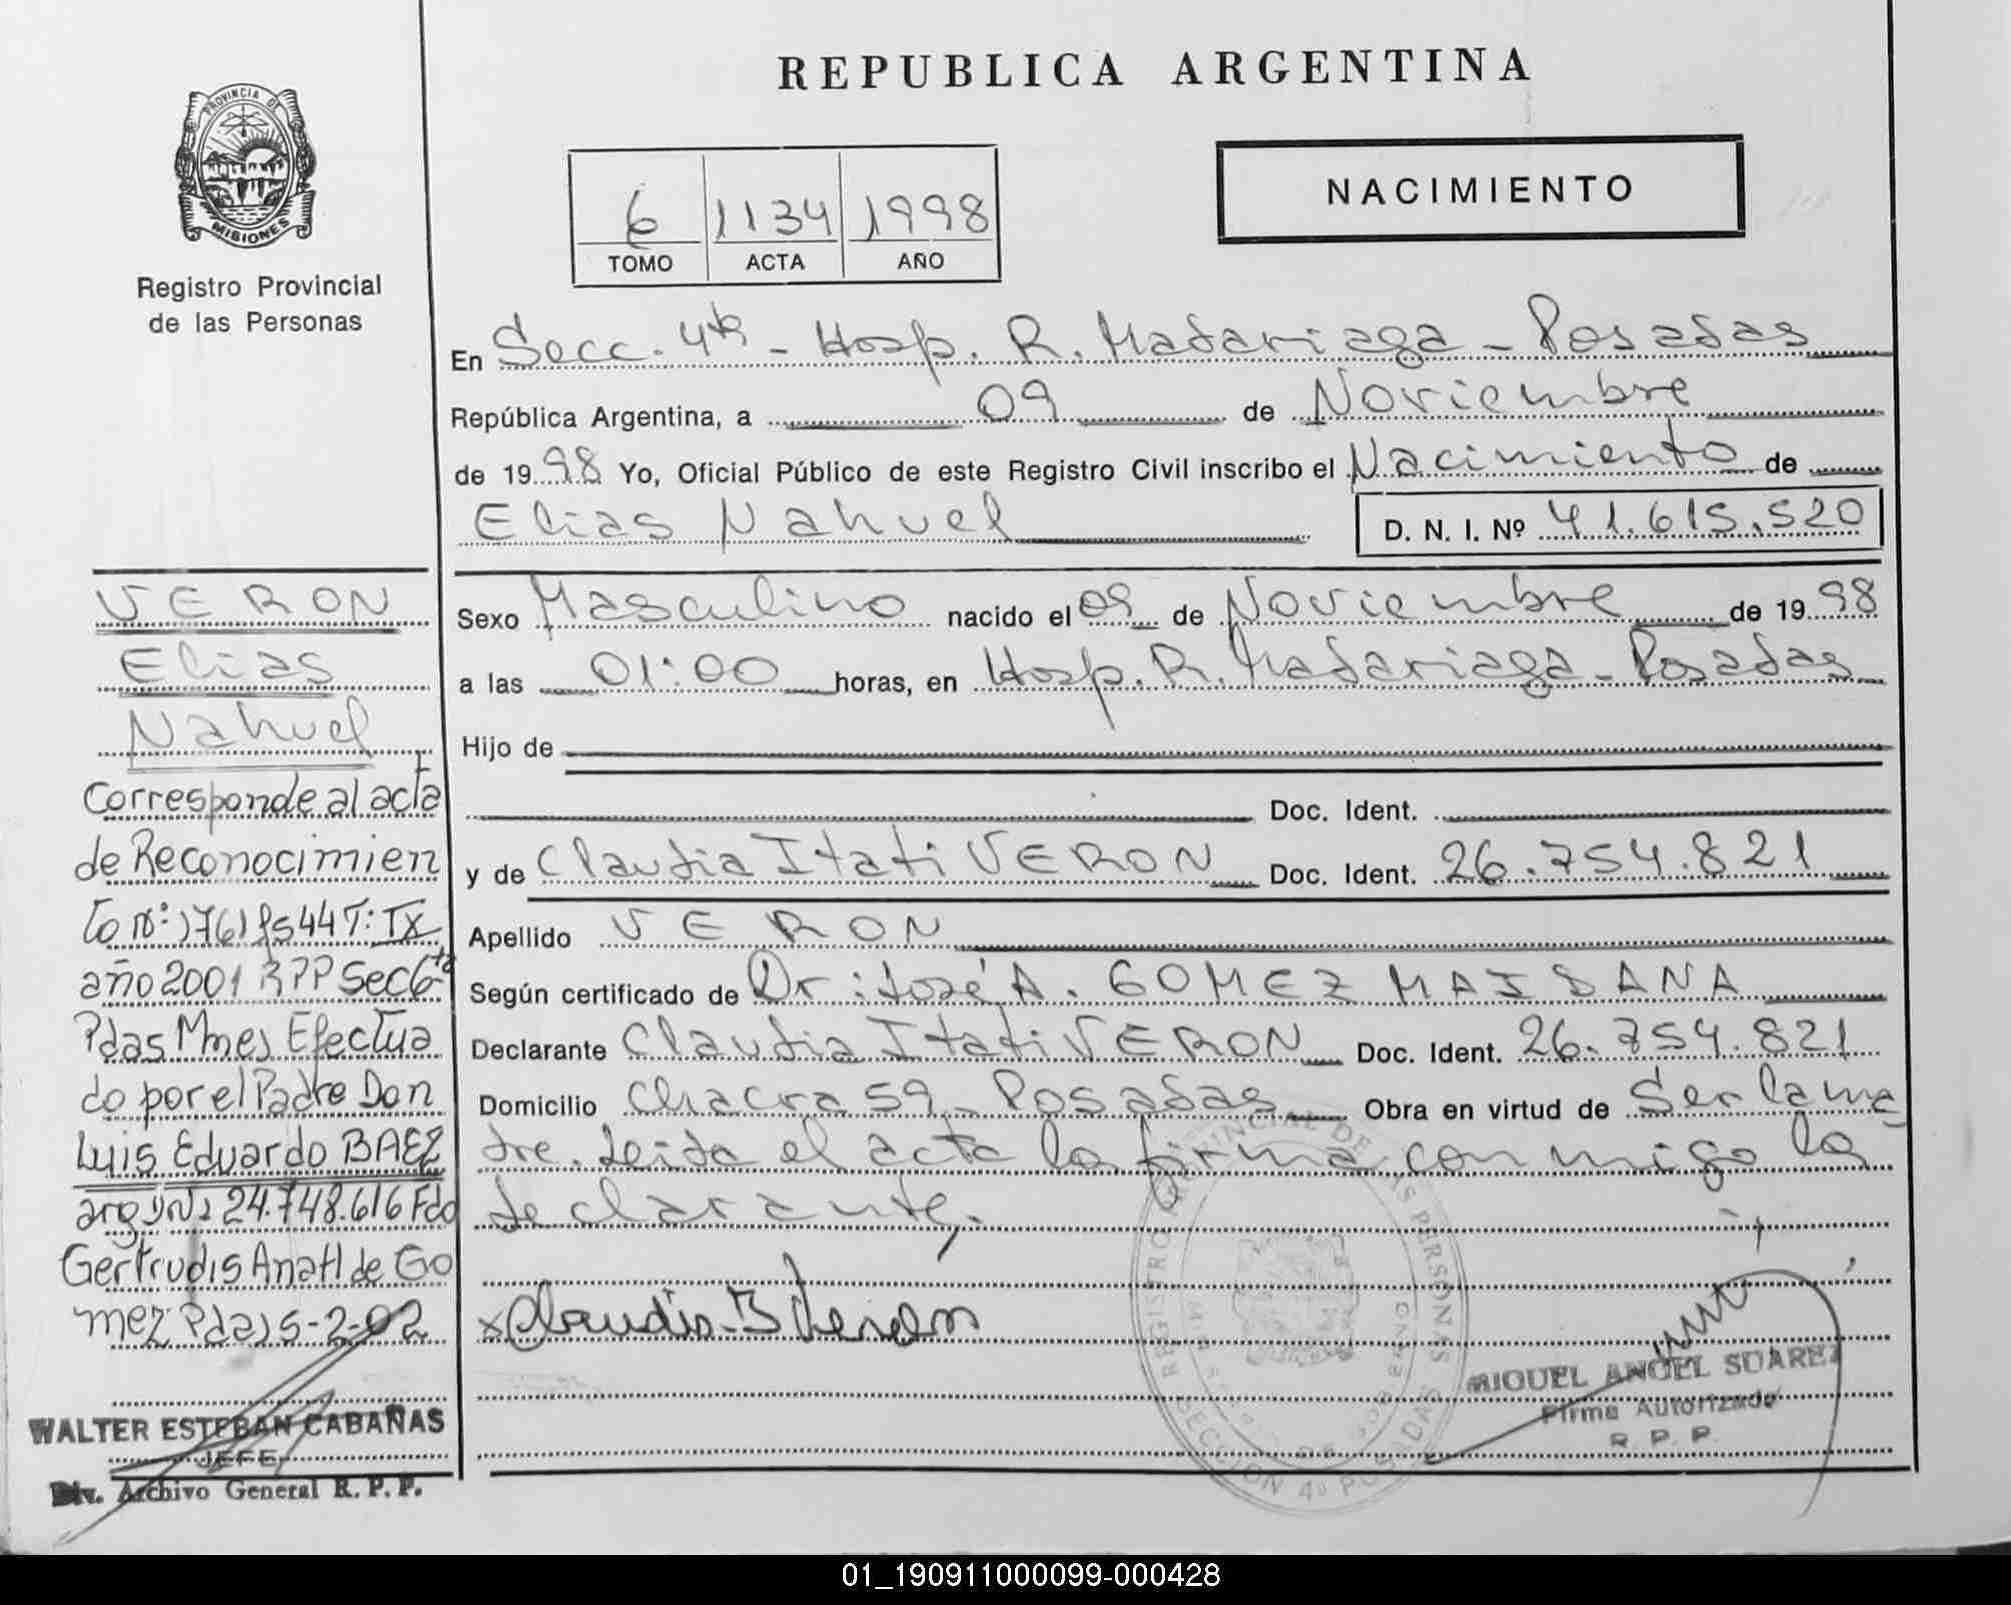 REPUBLICA ARGENTINA
PROVINCIA DE
MISIONES
Registro Provincial
de las Personas
6 1134 1998
TOMO ACTA AÑO
NACIMIENTO
En Secc. 4ta - Hosp. R. Madariaga - Posadas
República Argentina, a 09 de Noviembre
de 1998 Yo, Oficial Público de este Registro Civil inscribo el Nacimiento de
Elias Nahuel D. N. I. Nº 41.615.520
Sexo Masculino nacido el 09 de Noviembre de 1998
a las 01:00 horas, en Hosp. R. Madariaga - Posadas
Hijo de
Doc. Ident.
y de Claudia Itati VERON Doc. Ident. 26.754.821
Apellido VERON
Según certificado de Dr: José A. GOMEZ MAIDANA
Declarante Claudia Itati VERON Doc. Ident. 26.754.821
Domicilio Chacra 59 - Posadas Obra en virtud de Ser la ma
dre. Leida el acta la firma conmigo la
declarante.
VERON
Elias
Nahuel
Corresponde al acta
de Reconocimien
to Nº: 1761 Fs 44 T: IX
año 2001 RPP Sec 6ta
Pdas Mnes Efectua
do por el Padre Don
Luis Eduardo BAEZ
arg DNI 24.748.616 Fdo
Gertrudis Anahl de Go
mez Pdas 5-2-02
WALTER ESTEBAN CABAÑAS
JEFE
Div. Archivo General R. P. P.
x Claudia I Veron
REGISTRO PROVINCIAL DE LAS PERSONAS
SECCION 4º POSADAS
MIGUEL ANGEL SUAREZ
Firma Autorizada
R. P. P.
01_190911000099-000428